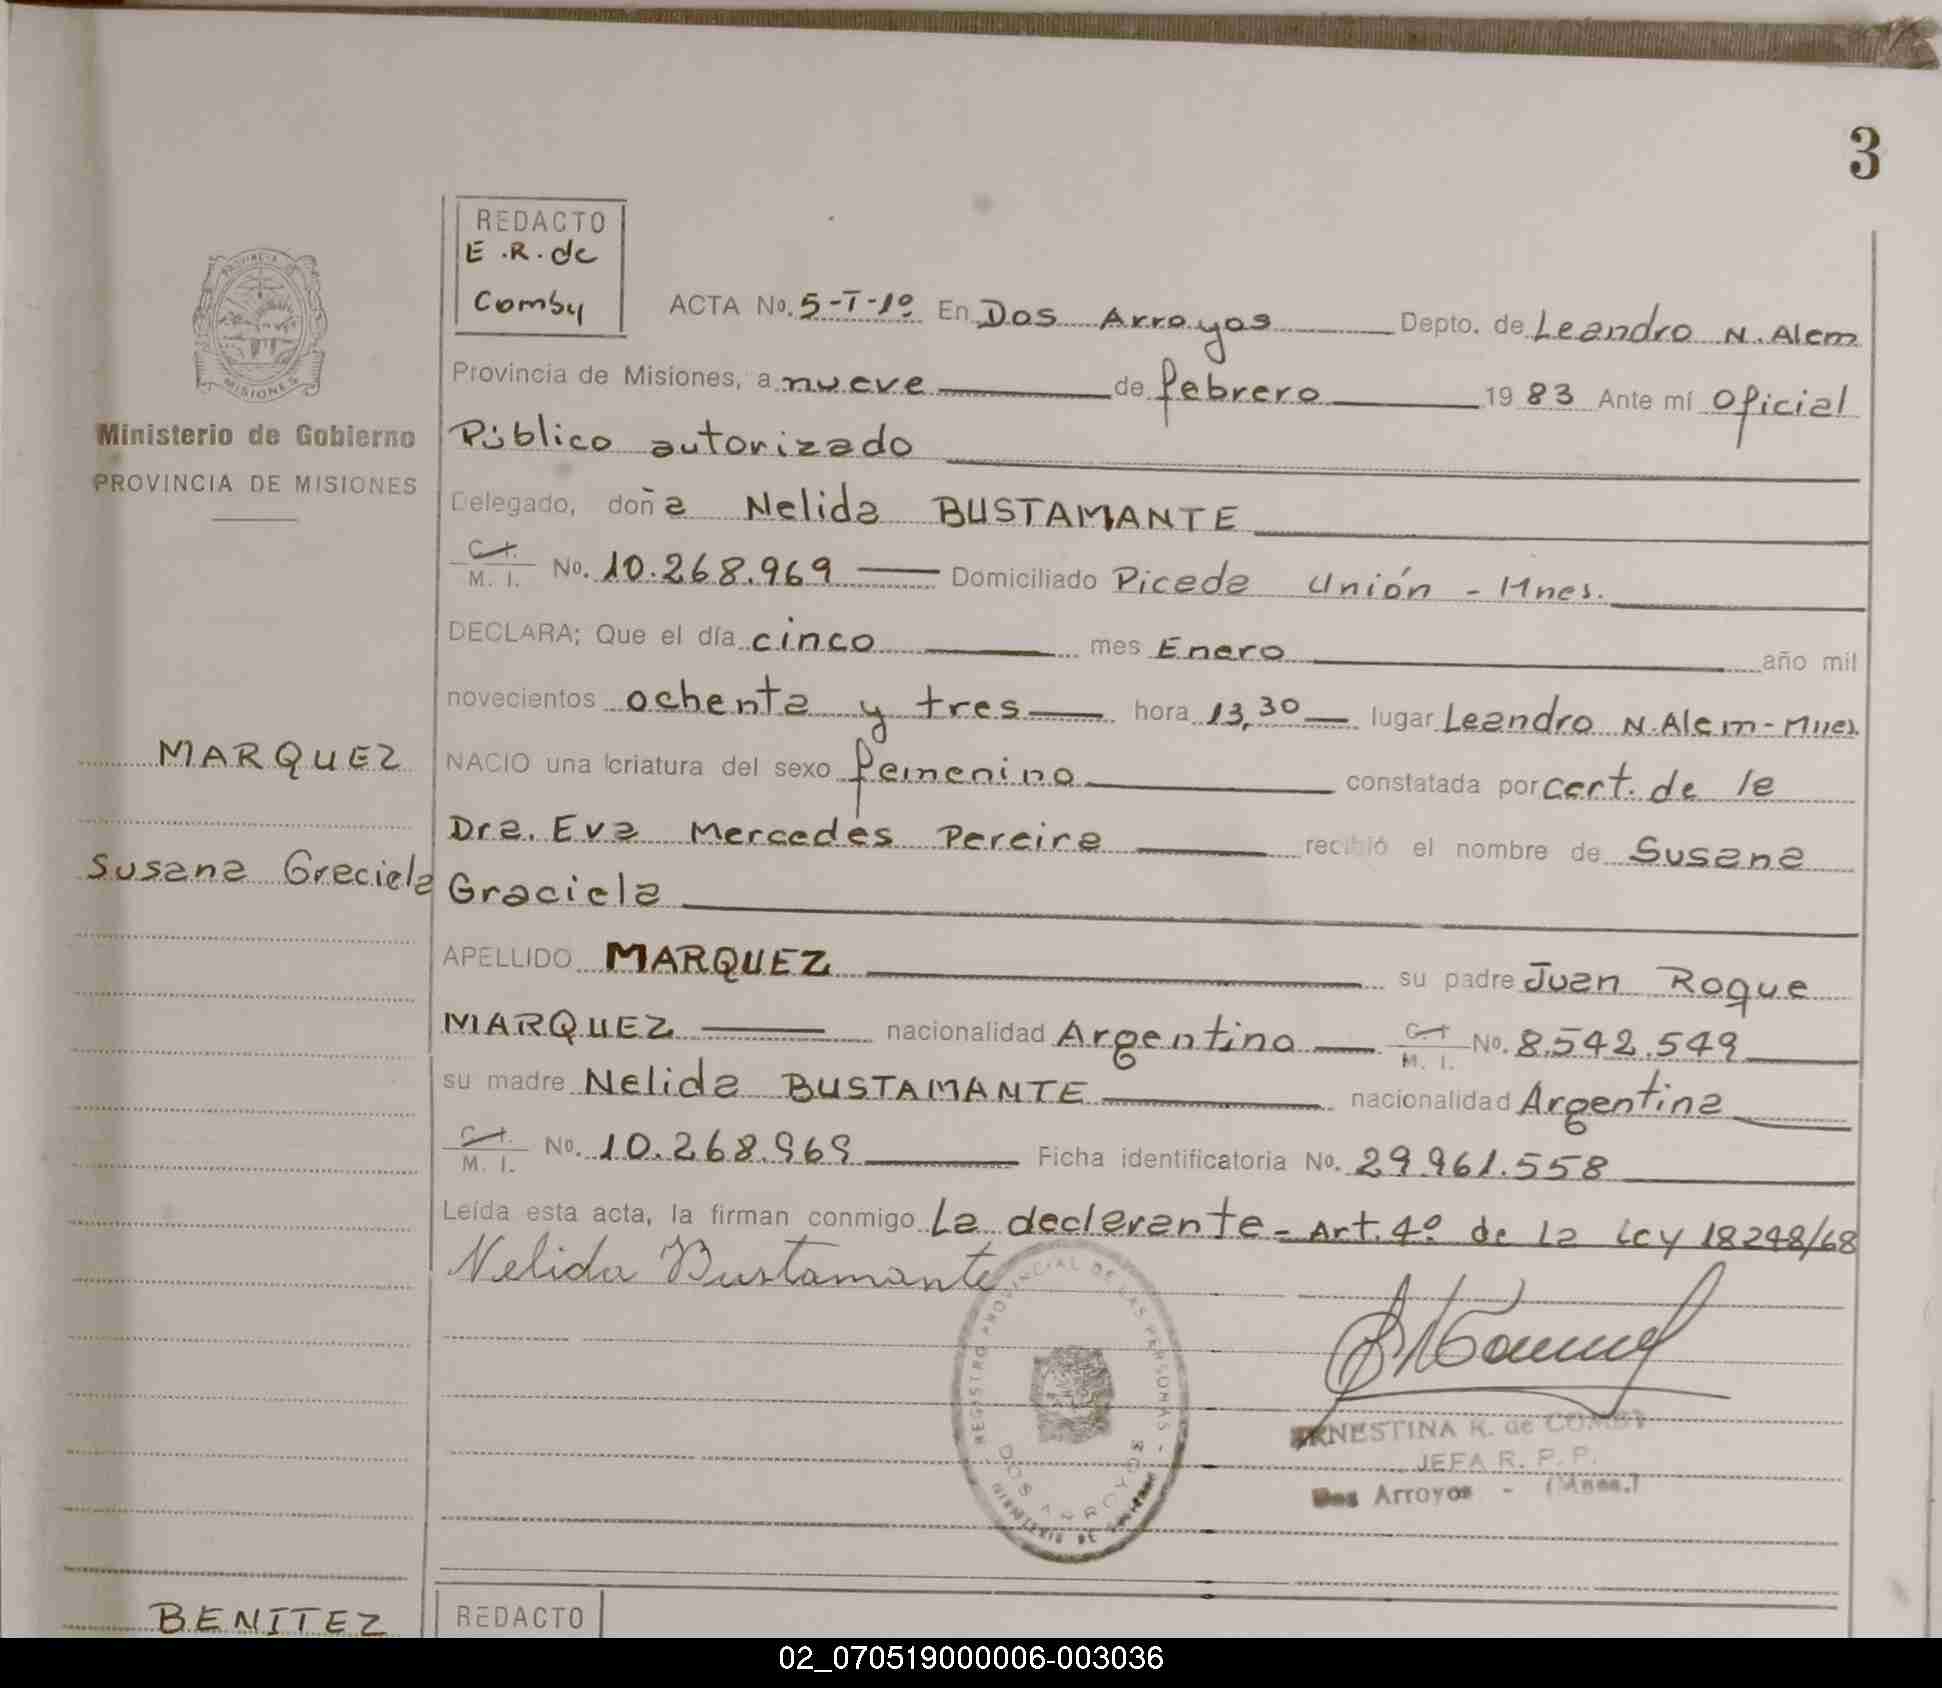 3
REDACTO
E.R. de
Comby
ACTA No. 5-T-1º En Dos Arroyos Depto. de Leandro N. Alem
Provincia de Misiones, a nueve de febrero 1983 Ante mí Oficial
Público autorizado
Delegado, doña Nelida BUSTAMANTE
C.I. M. I. No. 10.268.969 Domiciliado Picada Unión - Mnes.
DECLARA; Que el día cinco mes Enero año mil
novecientos ochenta y tres hora 13,30 lugar Leandro N. Alem - Mnes.
NACIO una criatura del sexo femenino constatada por cert. de la
Dra. Eva Mercedes Pereira recibió el nombre de Susana
Graciela
APELLIDO MARQUEZ su padre Juan Roque
MARQUEZ nacionalidad Argentino C.I. M. I. No. 8.542.549
su madre Nelida BUSTAMANTE nacionalidad Argentina
C.I. M. I. No. 10.268.969 Ficha identificatoria No. 29.961.558
Leída esta acta, la firman conmigo La declarante - Art. 4º de la Ley 18248/68
Nelida Bustamante
REGISTRO PROVINCIAL DE LAS PERSONAS -
DOS ARROYOS
MINISTERIO DE
ERNESTINA R. de COMBY
JEFA R. P. P.
Dos Arroyos - (Mnes.)
PROVINCIA DE
MISIONES
Ministerio de Gobierno
PROVINCIA DE MISIONES
MARQUEZ
Susana Graciela
BENITEZ
REDACTO
02_070519000006-003036